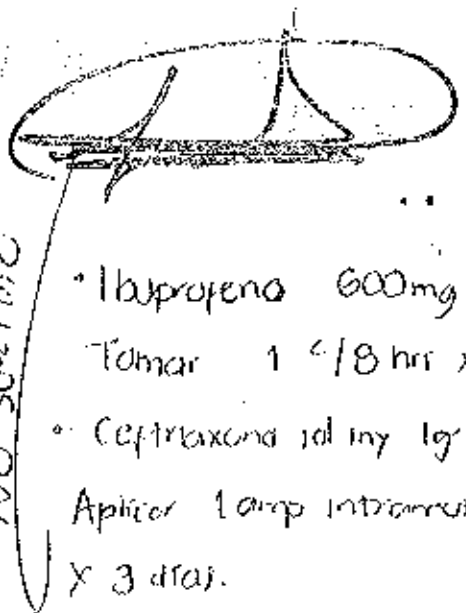 • Ibuprofeno 600mg
Tomar 1 c/8 hrs x
• Ceftriaxona sol iny 1gr
Aplicar 1 amp intramu
x 3 días.